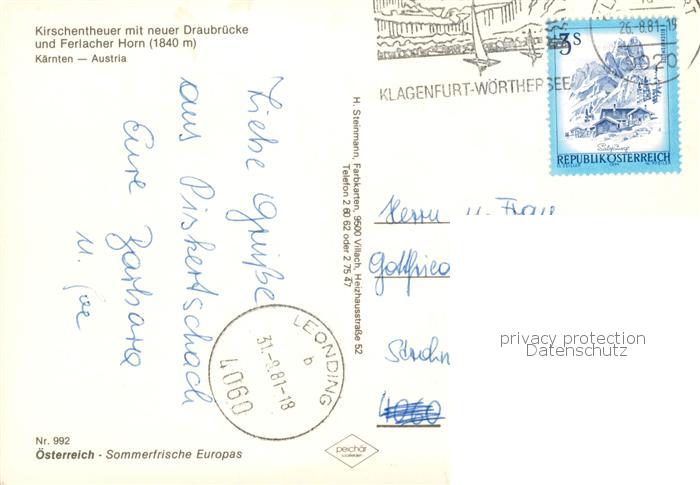 Kirschentheuer mit neuer Draubrücke
und Ferlacher Horn (1840 m)
Kärnten — Austria
Liebe Grüße
aus Pirkertschach
Eure Barbara
u. Joe
H. Steinmann, Farbkarten, 9500 Villach, Heizhausstraße 52
Telefon 2 60 62 oder 2 75 47
KLAGENFURT-WÖRTHERSEE
26.-8.81-19
9020
3 S
REPUBLIK ÖSTERREICH
Herrn u. Frau
Gottfried
Stroh
4060
privacy protection
Datenschutz
LEONDING
b
31.-8.81-18
4060
Nr. 992
Österreich - Sommerfrische Europas